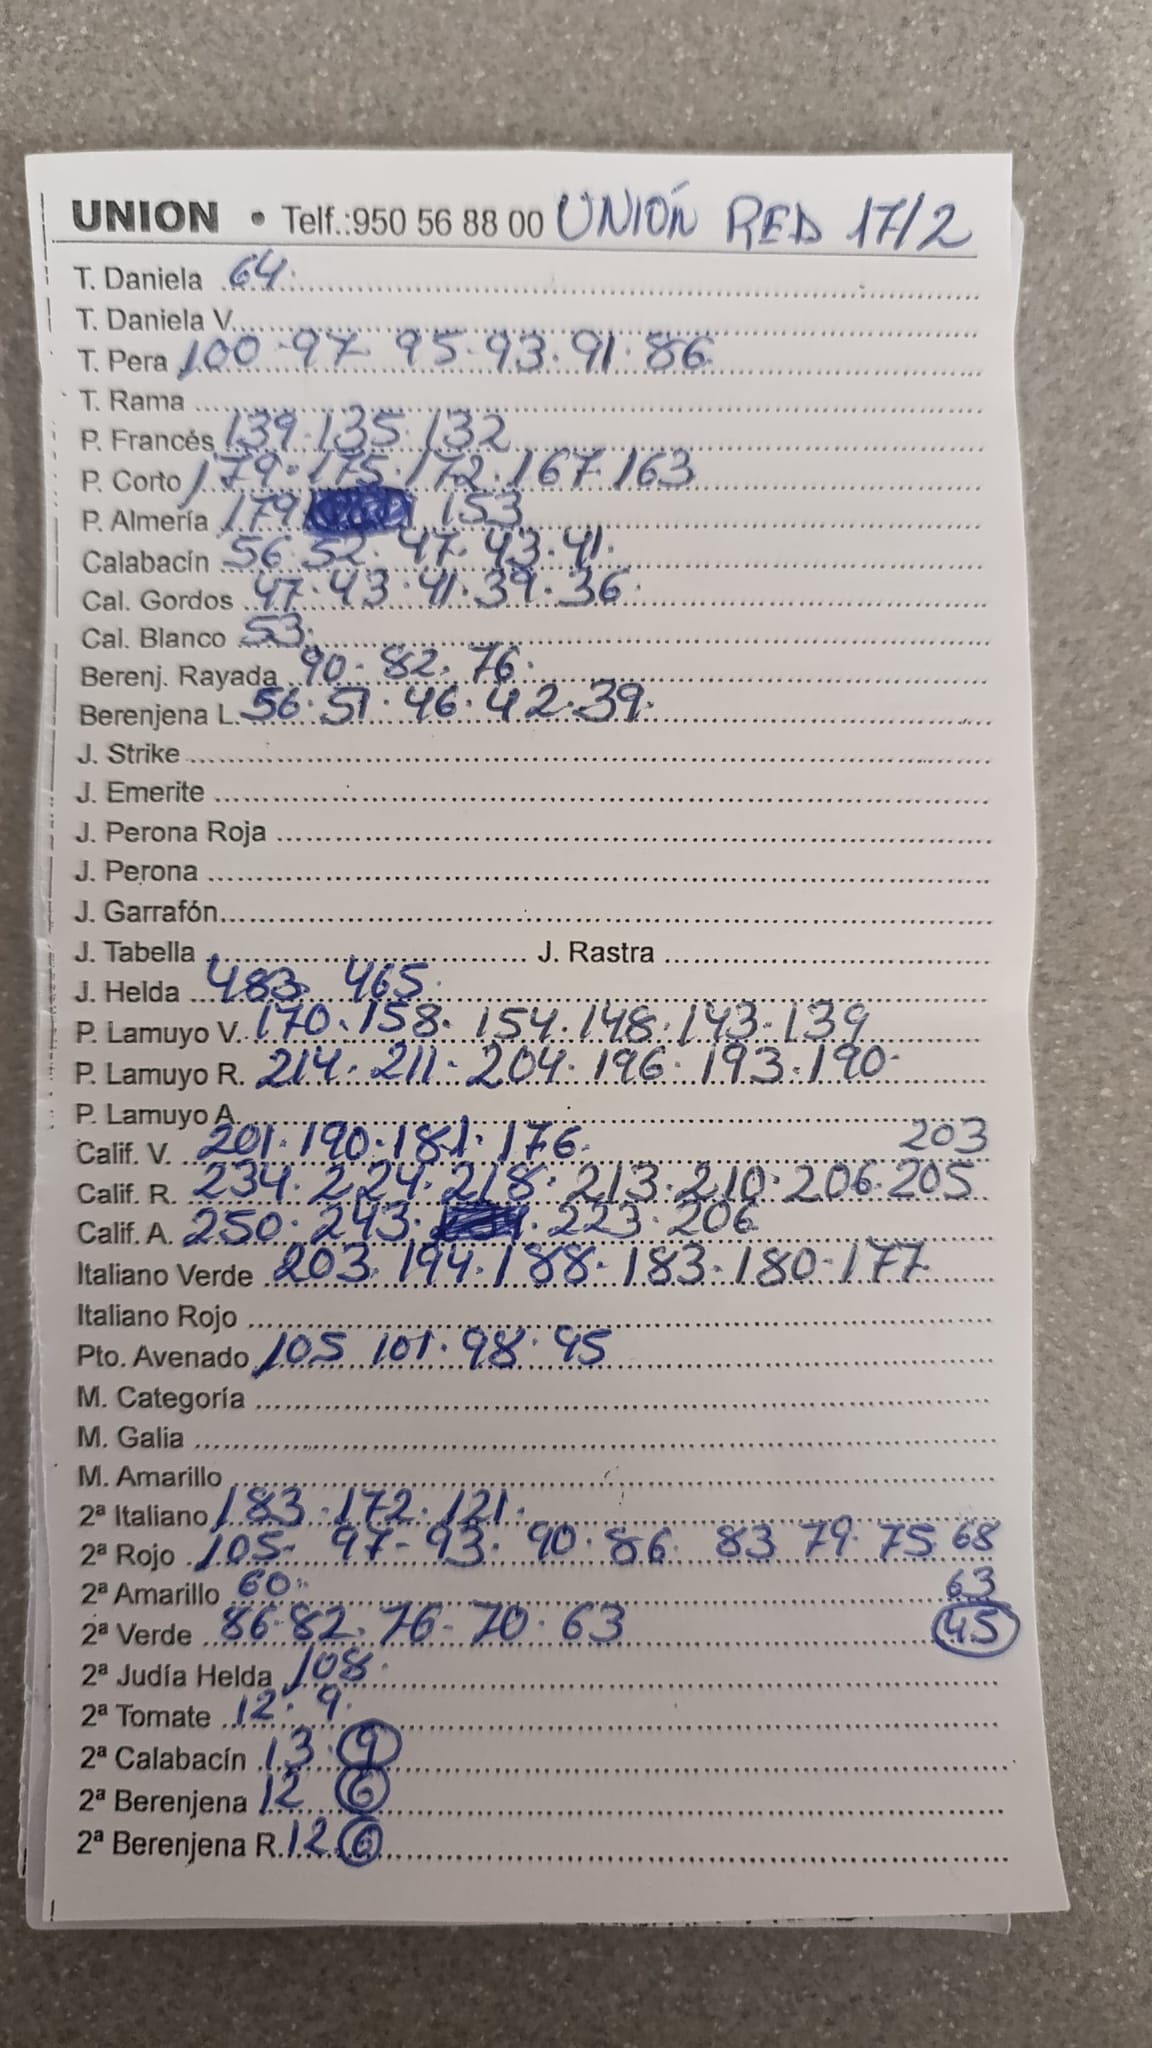 UNION • Telf.:950 56 88 00 UNIÓN RED 17/2
T. Daniela 64.
T. Daniela V.
T. Pera 100 - 97 95 - 93 . 91 . 86
T. Rama
P. Francés 139 . 135 . 132
P. Corto 179 . 175 . 172 . 167 163
P. Almería 179 153
Calabacín 56 . 52 . 47 . 43 . 41.
Cal. Gordos 47 . 43 . 41 . 39 . 36.
Cal. Blanco 53.
Berenj. Rayada 90 . 82 . 76.
Berenjena L. 56 . 51 . 46 . 42 . 39.
J. Strike
J. Emerite
J. Perona Roja
J. Perona
J. Garrafón
J. Tabella J. Rastra
J. Helda 483 465.
P. Lamuyo V. 170 . 158 . 154 . 148 . 143 . 139
P. Lamuyo R. 214 . 211 . 204 . 196 . 193 . 190.
P. Lamuyo A.
Calif. V. 201 . 190 . 181 . 176. 203
Calif. R. 234 . 224 . 218 . 213 . 210 . 206 . 205
Calif. A. 250 . 243 . 223 . 206
Italiano Verde 203 . 194 . 188 . 183 . 180 . 177
Italiano Rojo
Pto. Avenado 105 101 . 98 . 95
M. Categoría
M. Galia
M. Amarillo
2ª Italiano 183 . 172 . 121.
2ª Rojo 105 - 97 - 93 . 90 . 86 83 79 . 75 68
2ª Amarillo 60. 63
2ª Verde 86 . 82 . 76 - 70 . 63 45
2ª Judía Helda 108.
2ª Tomate 12 . 9.
2ª Calabacín 13 . 9
2ª Berenjena 12 6
2ª Berenjena R. 12 6